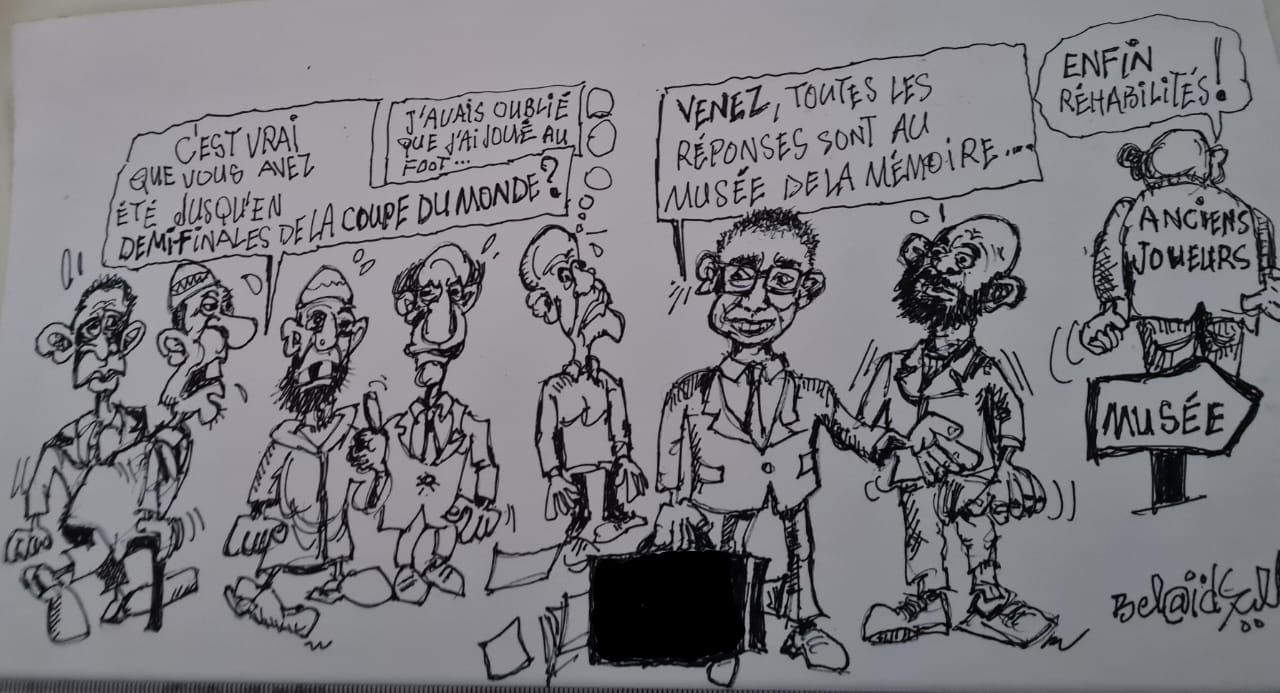 C'EST VRAI
QUE VOUS AVEZ
ÉTÉ JUSQU'EN
DEMIFINALES DE LA COUPE DU MONDE?
J'AVAIS OUBLIÉ
QUE J'AI JOUÉ AU
FOOT...
VENEZ, TOUTES LES
RÉPONSES SONT AU
MUSÉE DE LA MÉMOIRE...
ENFIN
RÉHABILITÉS!
ANCIENS
JOUEURS
MUSÉE
Bel@id